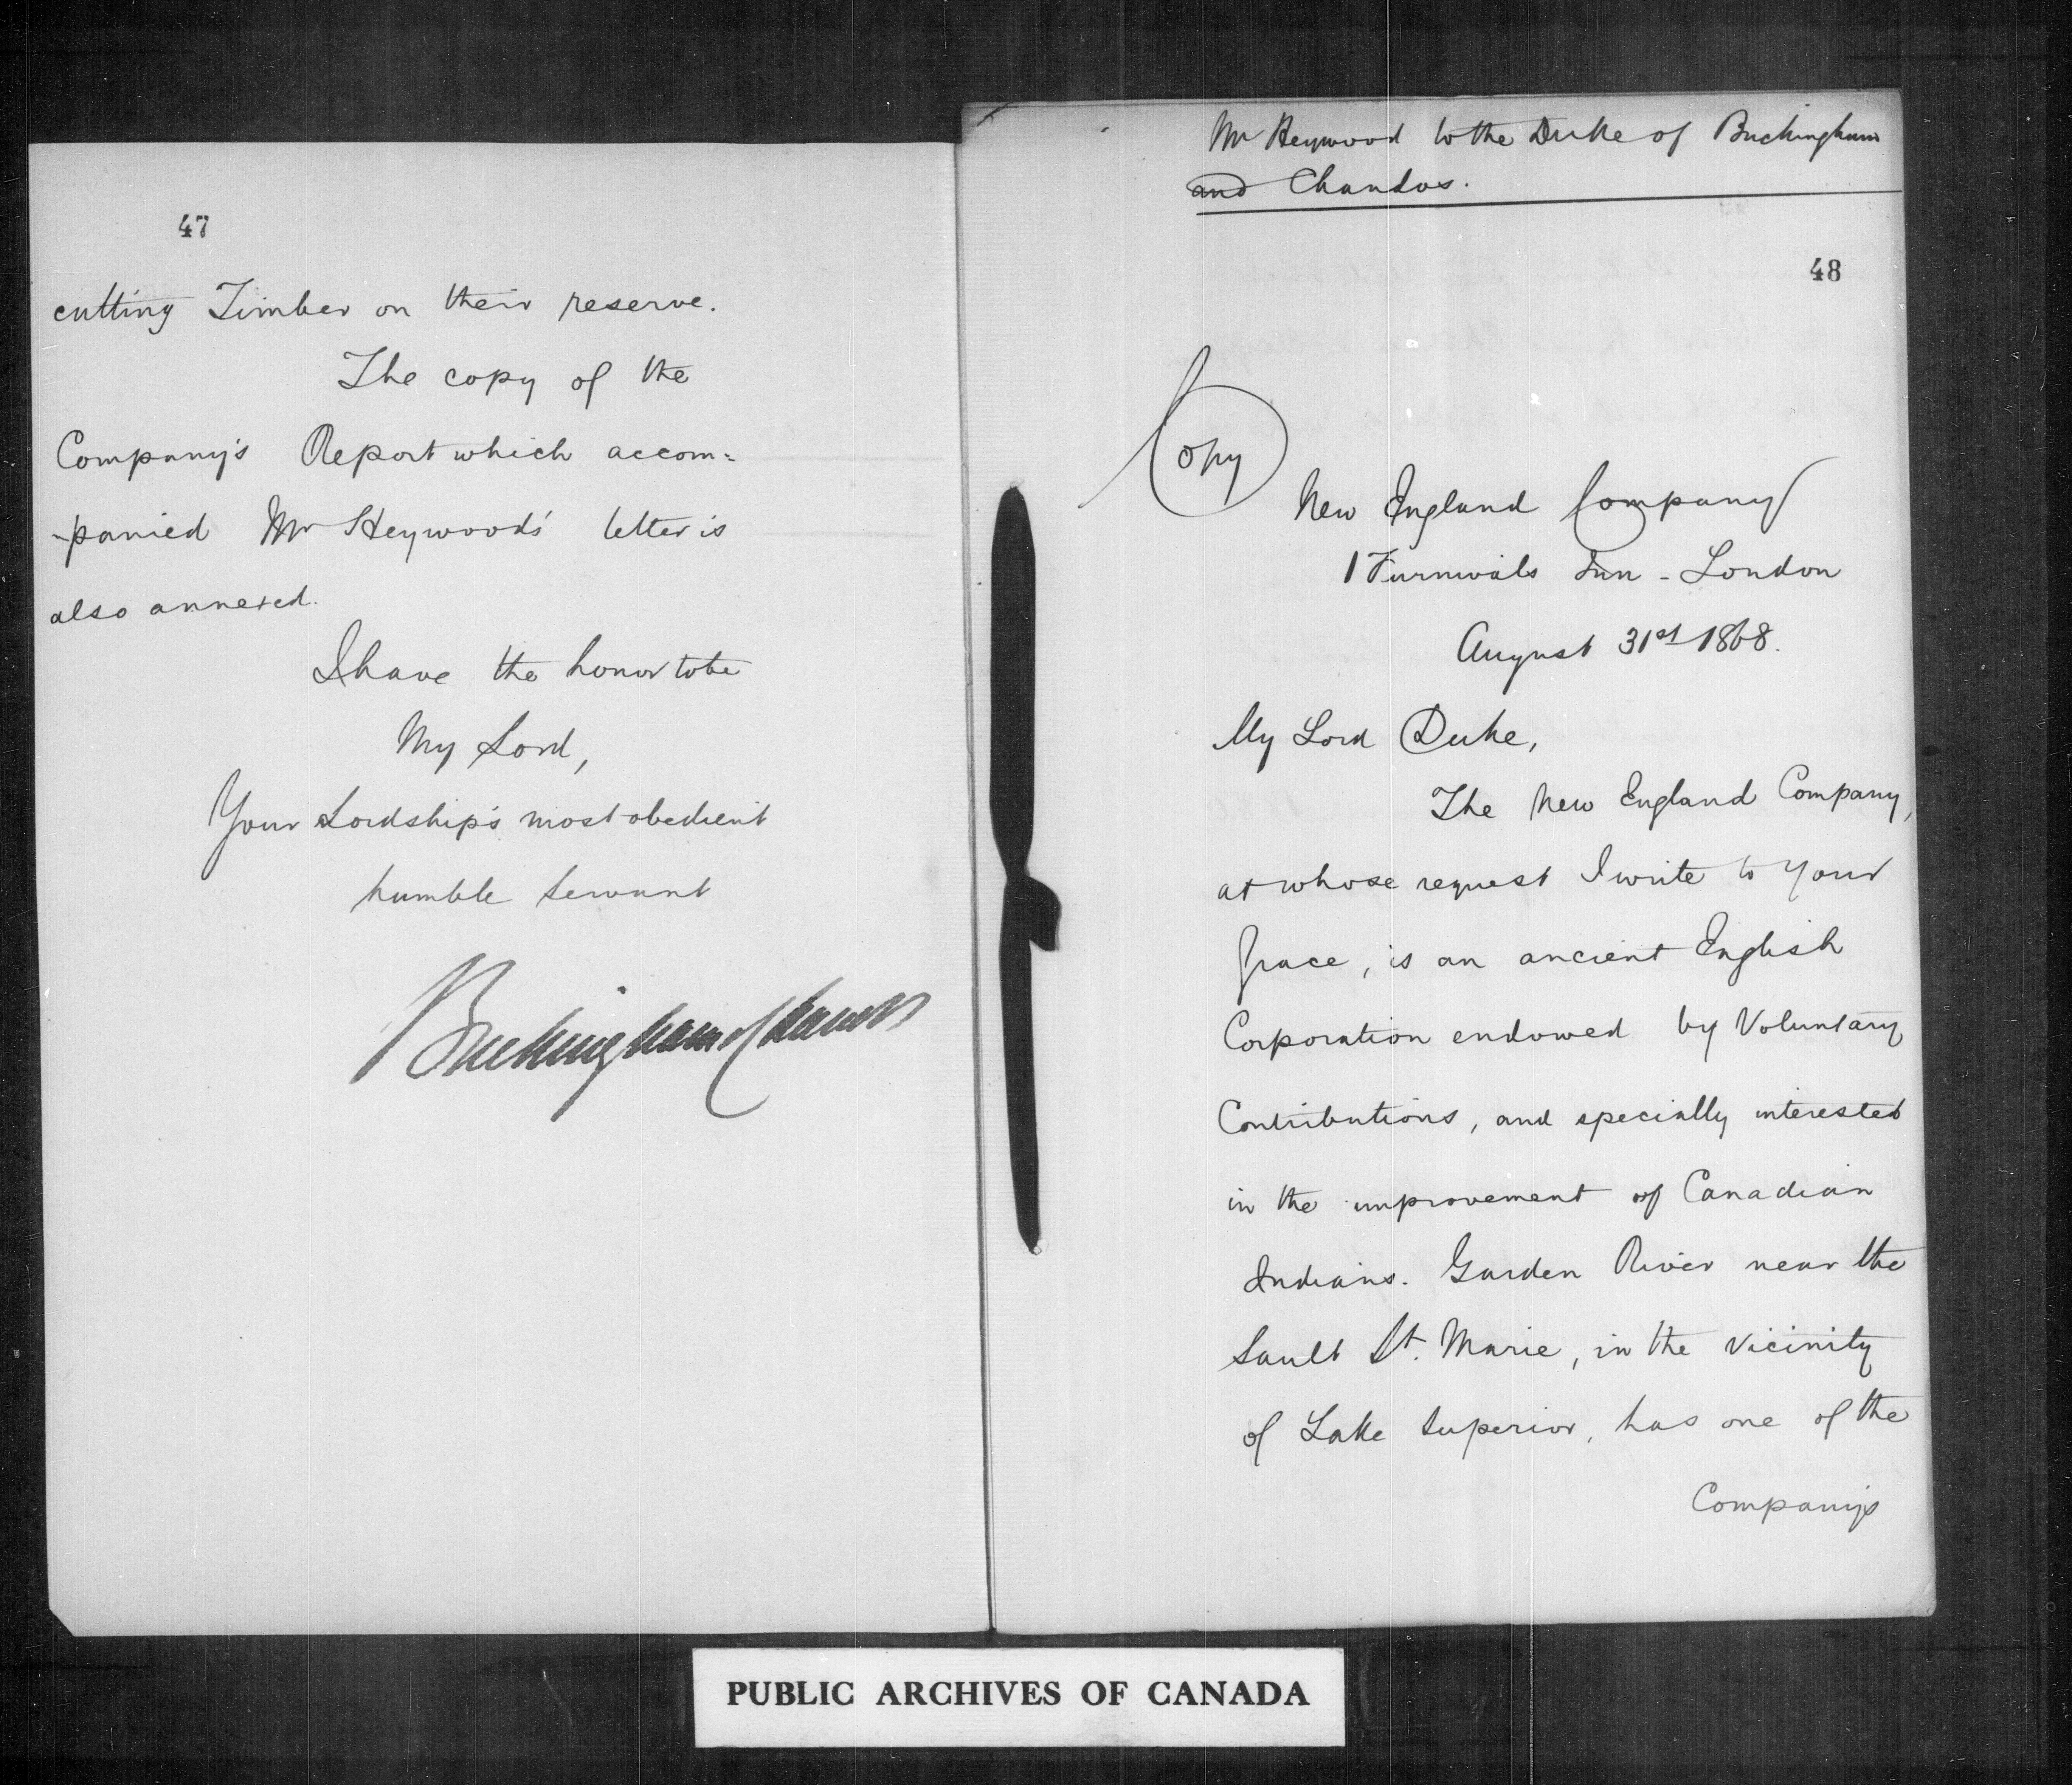 47
cutting Timber on their reserve.
The copy of the
Company's Report which accom=
-panied Mr Heywood's letter is
also annexed.
I have the honor to be
My Lord,
Your Lordship's most obedient
humble servant
Buckingham & Chandos
Mr Heywood to the Duke of Buckingham
and Chandos.
48
Copy
New England Company
1 Furnivals Inn - London
August 31st 1868.
My Lord Duke,
The New England Company,
at whose request I write to your
Grace, is an ancient English
Corporation endowed by Voluntary
Contributions, and specially interested
in the improvement of Canadian
Indians. Garden River near the
Sault St. Marie, in the vicinity
of Lake Superior, has one of the
Company's
PUBLIC ARCHIVES OF CANADA